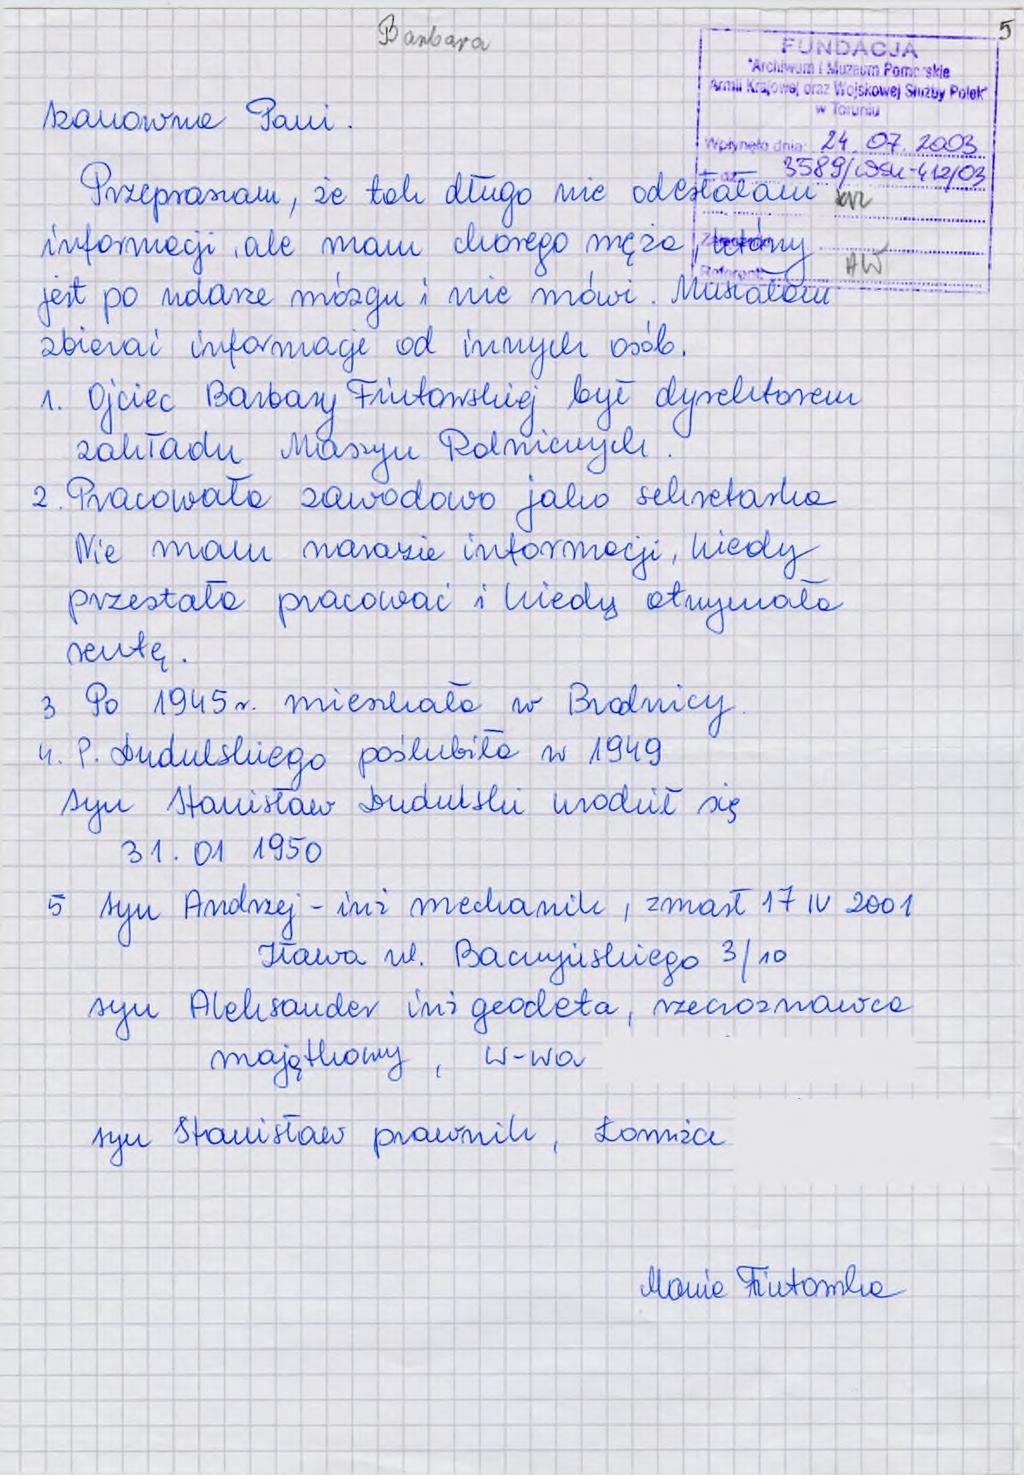 Barbara
5
FUNDACJA
"Archiwum i Muzeum Pomorskie
Armii Krajowej oraz Wojskowej Służby Polek"
w Toruniu
Wpłynęło dnia: 24.07.2003
3589/WSK-412/03
AW
Szanowna Pani.
Przepraszam, że tak długo nie odesłałam
informacji, ale mam chorego męża, który
jest po udarze mózgu i nie mówi. Musiałam
zbierać informacje od innych osób.
1. Ojciec Barbary Fiutowskiej był dyrektorem
zakładu Maszyn Rolniczych.
2. Pracowała zawodowo jako sekretarka
Nie mam narazie informacji, kiedy
przestała pracować i kiedy otrzymała
rentę.
3 Po 1945 r. mieszkała w Brodnicy.
4. P. Dudulskiego poślubiła w 1949
syn Stanisław Dudulski urodził się
31.01 1950
5 syn Andrzej - inż mechanik, zmarł 17 IV 2001
Iława ul. Baczyńskiego 3/10
syn Aleksander inż geodeta, rzeczoznawca
majątkowy, W-wa
syn Stanisław prawnik, Łomża
Maria Fiutowska